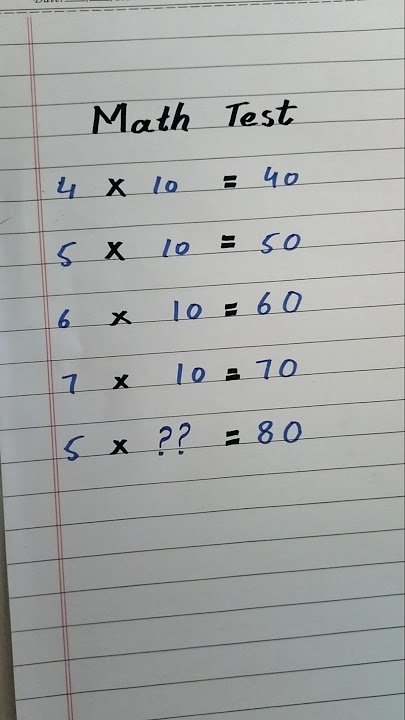 Math Test
4 x 10 = 40
5 x 10 = 50
6 x 10 = 60
7 x 10 = 70
5 x ?? = 80